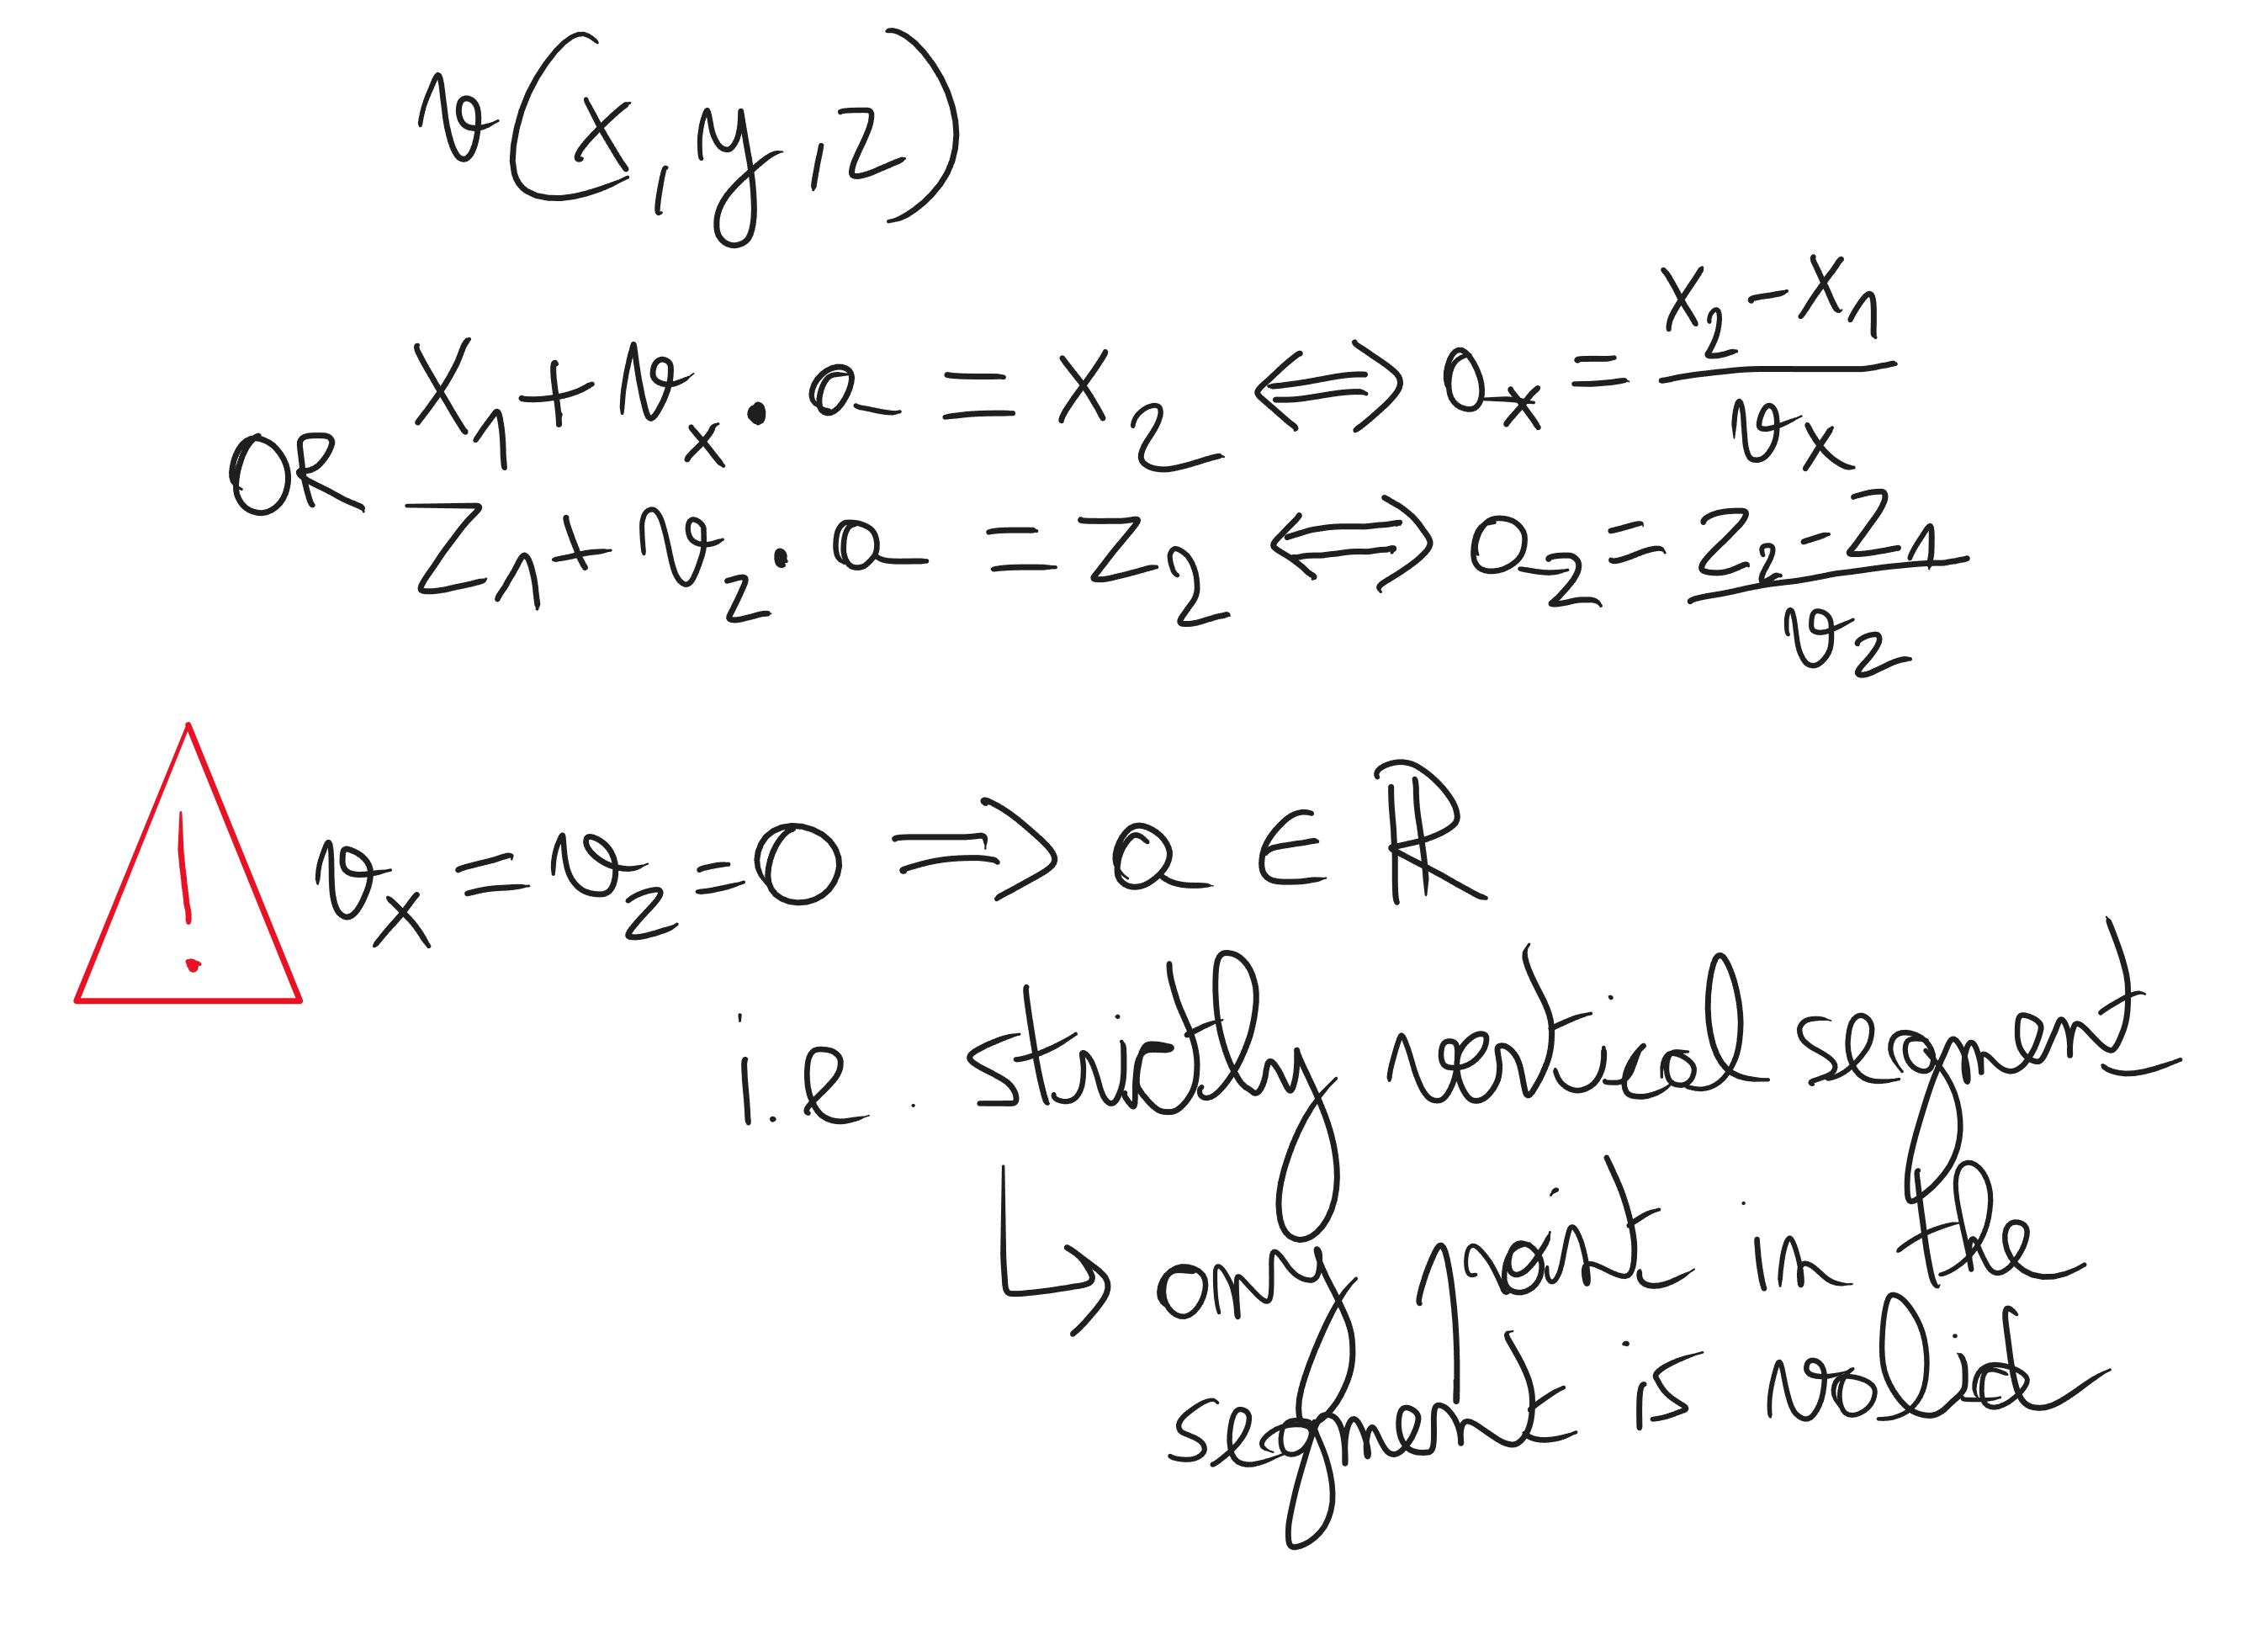 v(x, y, z)
x₁ + vₓ · a = x₂ ⟺ aₓ = (x₂ - x₁) / vₓ
OR
z₁ + v_z · a = z₂ ⟺ a_z = (z₂ - z₁) / v_z
! vₓ = v_z = 0 ⟹ a ∈ ℝ
i.e. strictly vertical segment
↳ any point in the
segment is valid